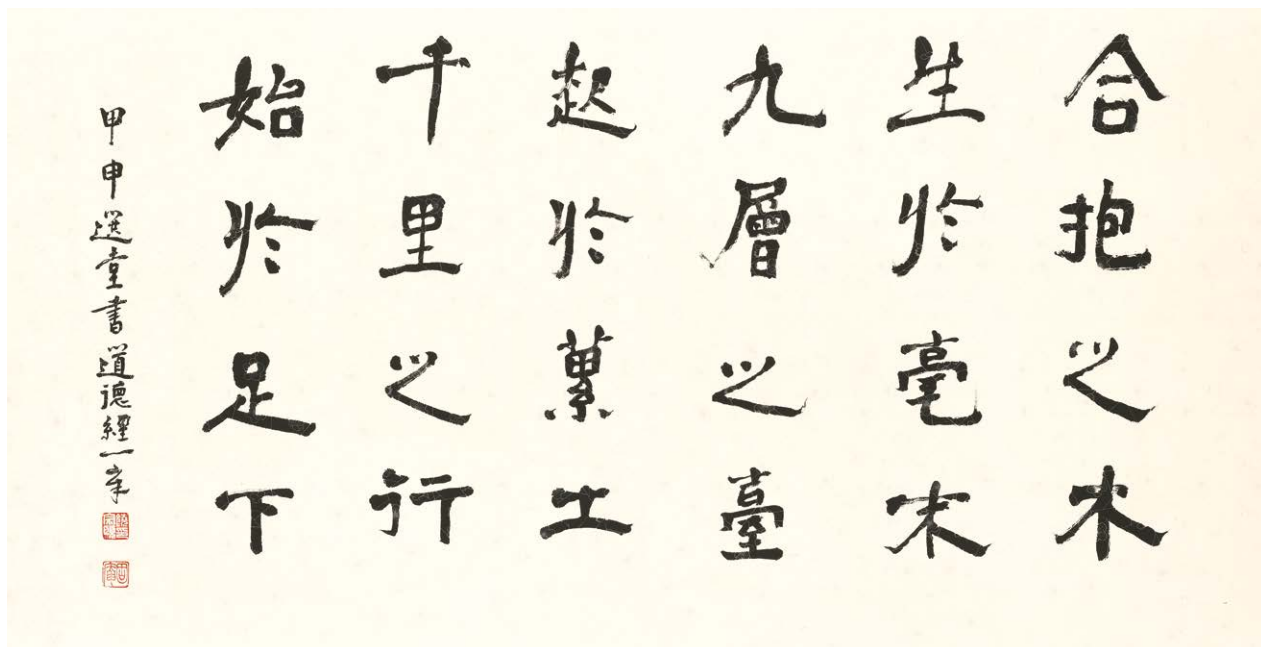 合抱之木
生於毫末
九層之臺
起於藁土
千里之行
始於足下
甲申選堂書道德經一章